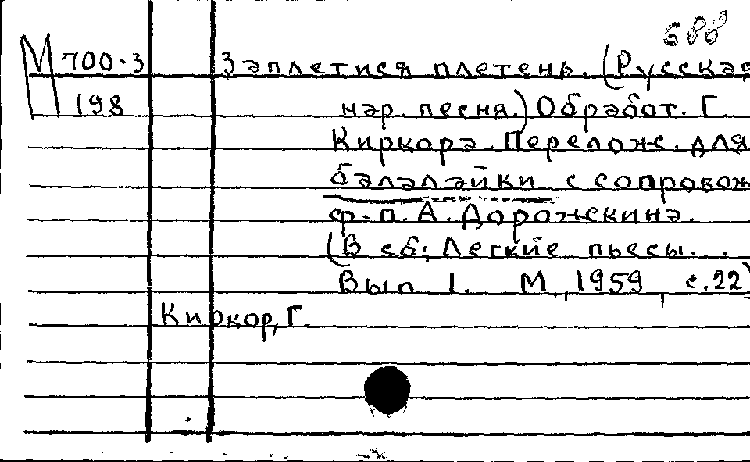 688
М 700-3 Заплетися плетень. (Русская
198 нар. песня.) Обработ. Г.
Киркора. Перелож. для
балалайки с сопровож
ф-п. А. Дорожкина.
(В сб: Легкие пьесы...
Вып 1. М, 1959, с.22)
Киркор, Г.